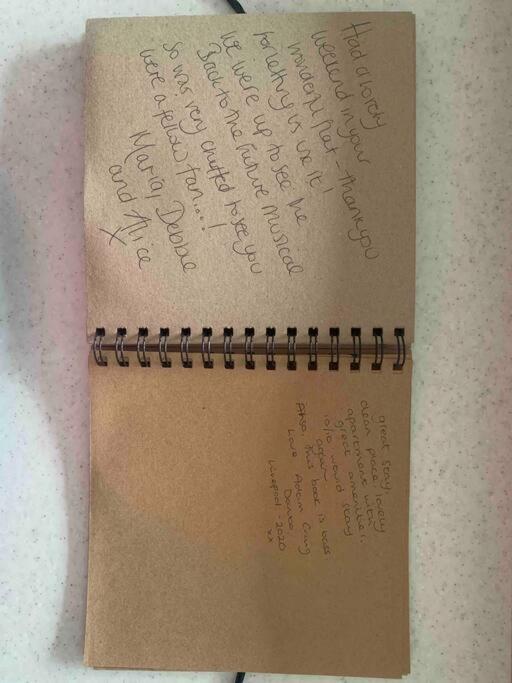 Had a lovely
weekend in your
wonderful flat - thank you
for letting us use it!
We were up to see the
Back to the Future musical
so was very chuffed to see you
were a fellow fan...!
Maria, Debbie
and Alice
X
great stay
clean place, lovely
apartment with
great amenities.
10/10 would stay
again
Also, this book is boss
Love Adam, Craig
Liverpool - 2020
xx